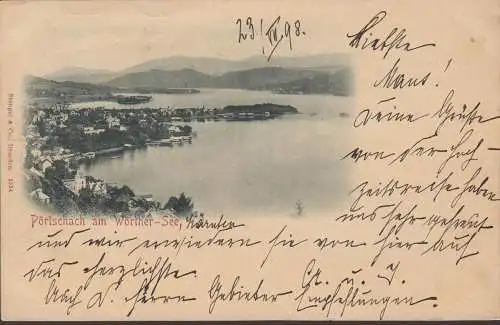 23/IV. 98.
Liebste
Maus!
Deine Grüße
von der Hoch-
zeitsreise haben
uns sehr gefreut
Stengel & Co., Dresden. 1034
Pörtschach am Wörther-See, Kärnten
und wir erwiedern sie von hier auf
das herzlichste.
Auch d. Herrn Gebieter
Empfehlungen.